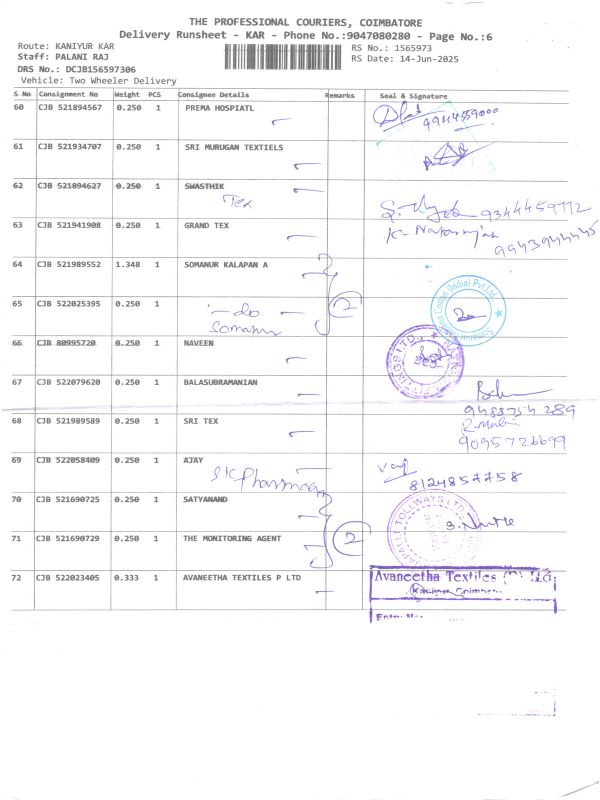 THE PROFESSIONAL COURIERS, COIMBATORE
Delivery Runsheet - KAR - Phone No.:9047080280 - Page No.:6
Route: KANIYUR KAR RS No.: 1565973
Staff: PALANI RAJ RS Date: 14-Jun-2025
DRS No.: DCJB156597306
Vehicle: Two Wheeler Delivery
S No Consignment No Weight PCS Consignee Details Remarks Seal & Signature
60 CJB 521894567 0.250 1 PREMA HOSPIATL
9944559000
61 CJB 521934707 0.250 1 SRI MURUGAN TEXTIELS
62 CJB 521894627 0.250 1 SWASTHIK
Tex
9344459772
63 CJB 521941908 0.250 1 GRAND TEX
9943944445
64 CJB 521989552 1.348 1 SOMANUR KALAPAN A
2
65 CJB 522025395 0.250 1 -do
Somanur
66 CJB 80995720 0.250 1 NAVEEN
67 CJB 522079620 0.250 1 BALASUBRAMANIAN
9488754289
68 CJB 521989589 0.250 1 SRI TEX
9095726699
69 CJB 522058409 0.250 1 AJAY
SK Pharmacy
8124857758
70 CJB 521690725 0.250 1 SATYANAND
TOLLWAYS LTD
71 CJB 521690729 0.250 1 THE MONITORING AGENT
2
72 CJB 522023405 0.333 1 AVANEETHA TEXTILES P LTD
Avaneetha Textiles (P) Ltd